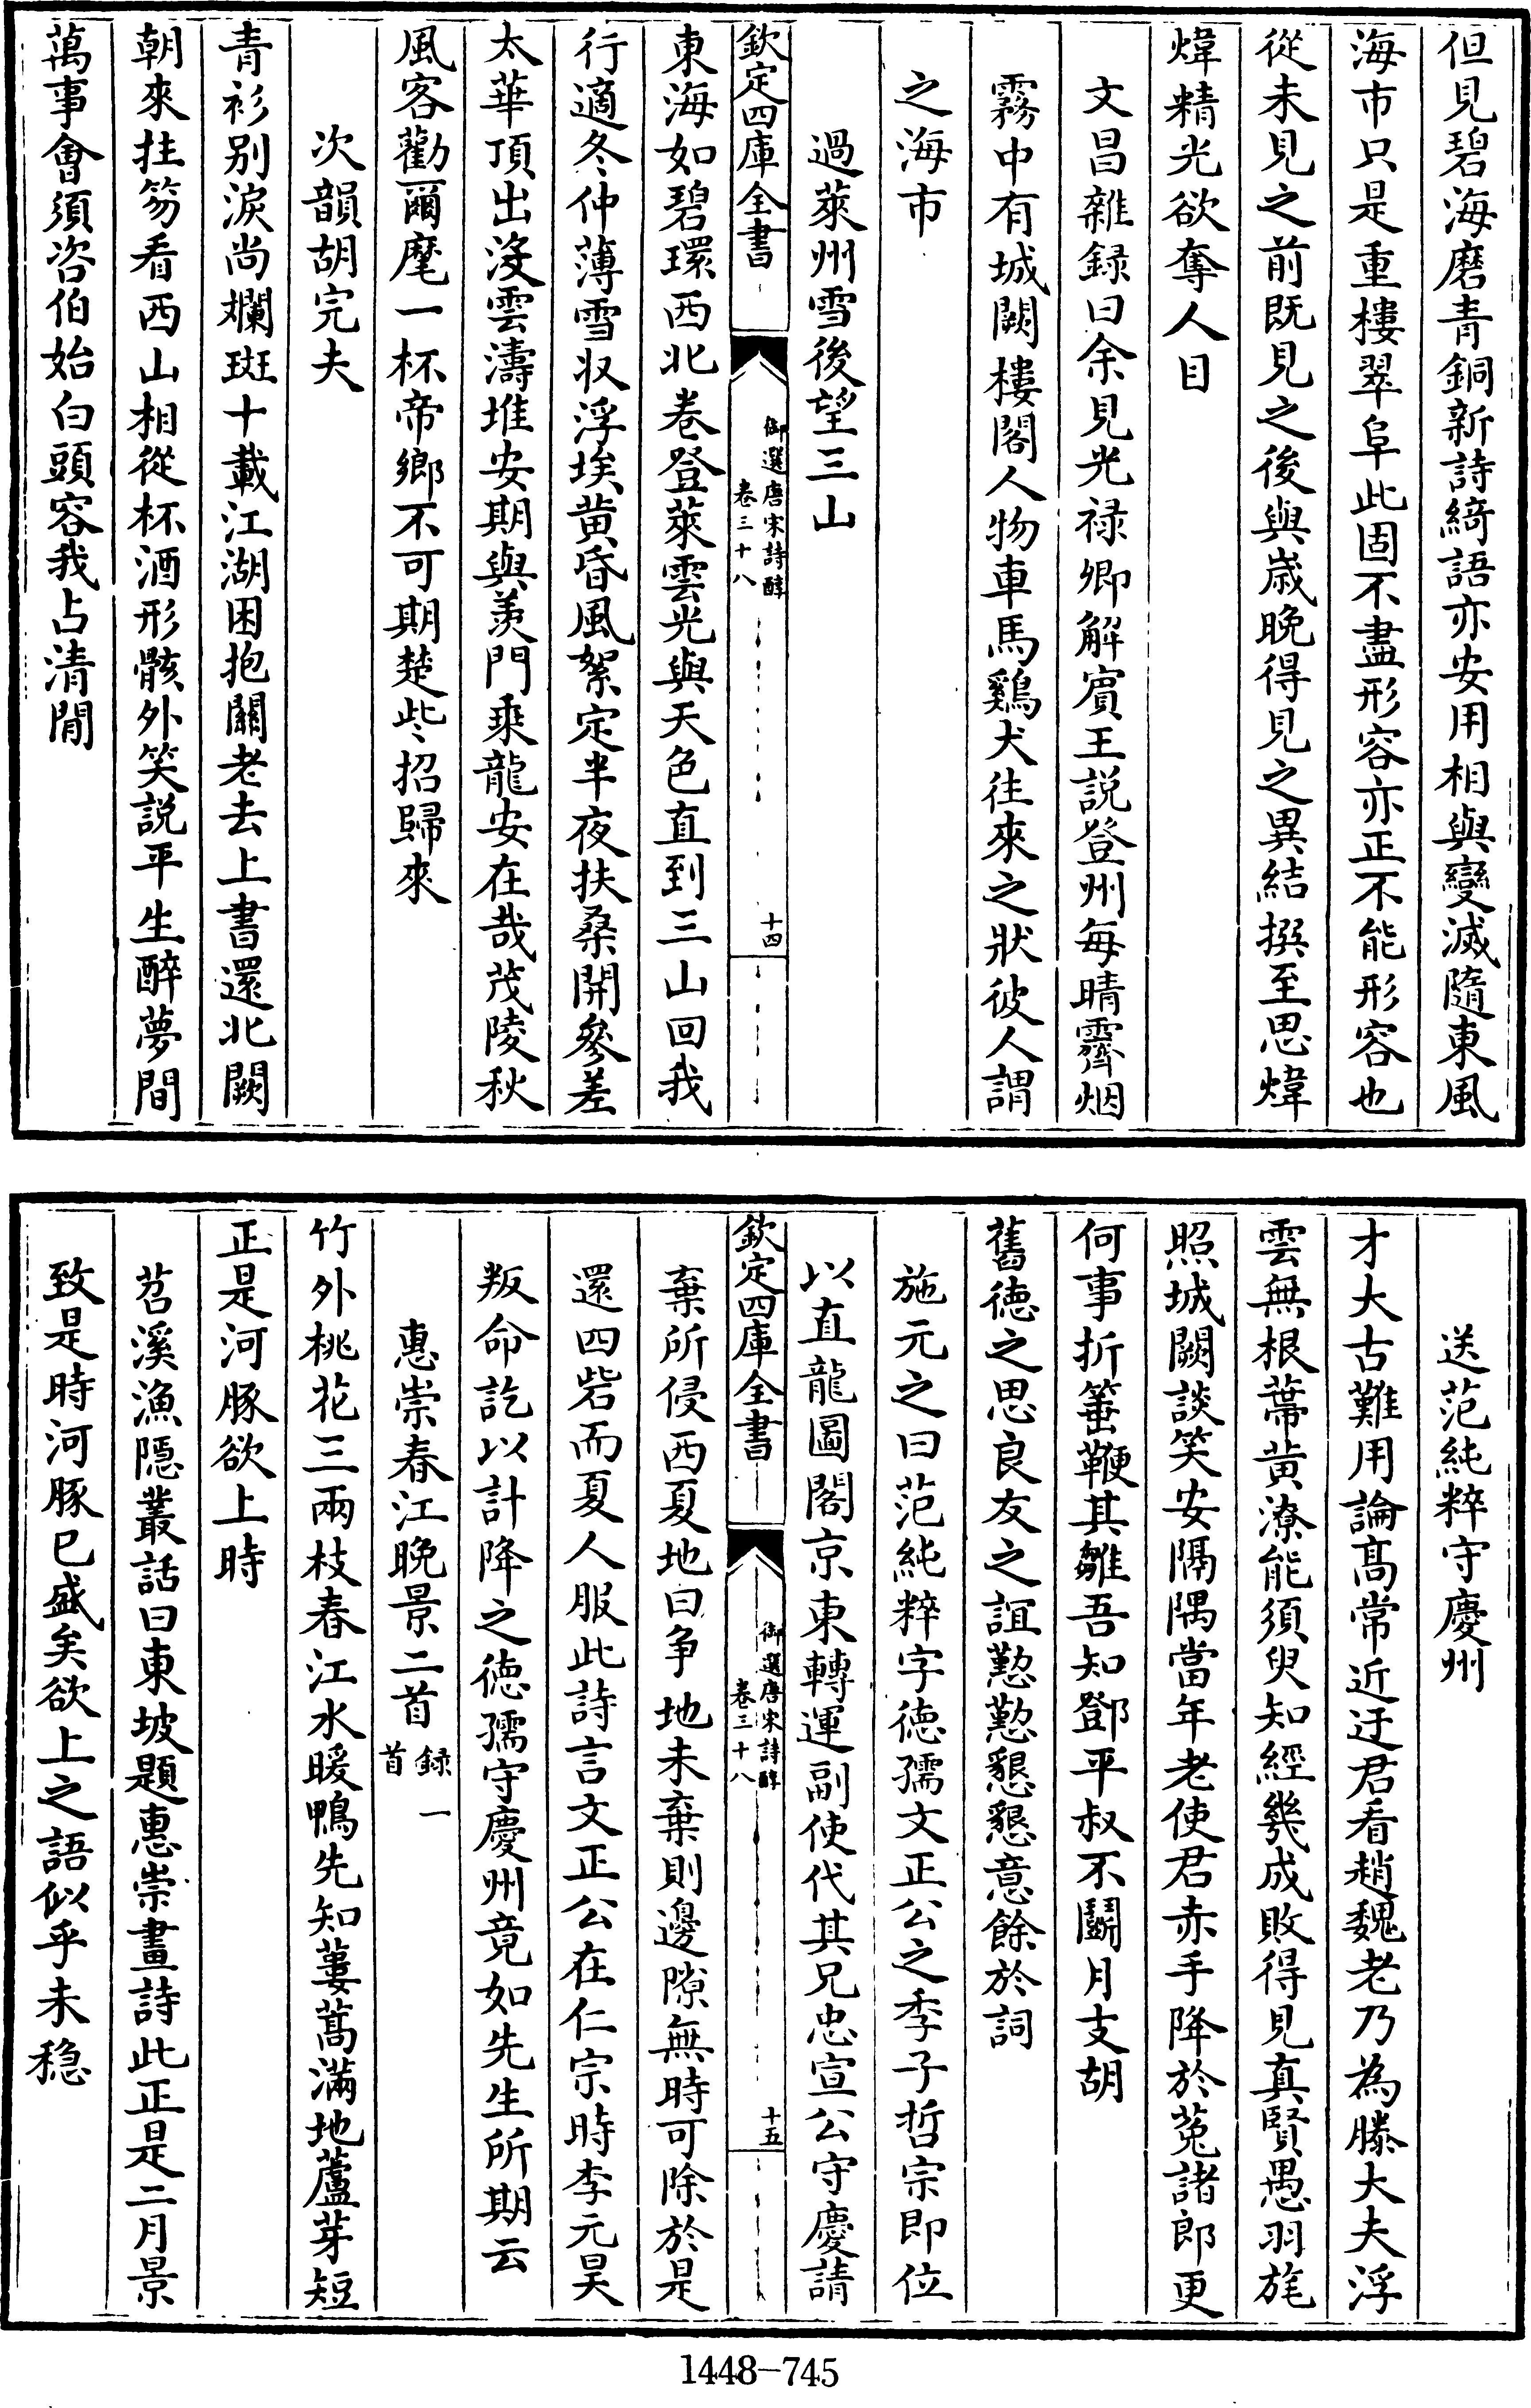 但見碧海磨青銅新詩綺語亦安用相與變滅隨東風
海市只是重樓翠阜此固不盡形容亦正不能形容也
從未見之前既見之後與嵗晚得見之異結撰至思煒
煒精光欲奪人目
文昌雜録曰余見光禄卿解賔王説登州每晴霽烟
霧中有城闕樓閣人物車馬鷄犬往來之狀彼人謂
之海市
過萊州雪後望三山
欽定四庫全書
御選唐宋詩醇
卷三十八
十四
東海如碧環西北卷登萊雲光與天色直到三山回我
行適冬仲薄雪収浮埃黄昏風絮定半夜扶桑開參差
太華頂出没雲濤堆安期與羨門乘龍安在哉茂陵秋
風客勸爾麾一杯帝鄉不可期楚些招歸來
次韻胡完夫
青衫别淚尚斕斑十載江湖困抱關老去上書還北闕
朝來拄笏看西山相從杯酒形骸外笑説平生醉夢間
萬事會須咨伯始白頭容我占清閒
送范純粹守慶州
才大古難用論髙常近迂君看趙魏老乃為滕大夫浮
雲無根蔕黄潦能須臾知經幾成敗得見真賢愚羽旄
照城闕談笑安隔隅當年老使君赤手降於菟諸郎更
何事折箠鞭其雛吾知鄧平叔不鬬月支胡
舊徳之思良友之誼懃懃懇懇意餘於詞
施元之曰范純粹字徳孺文正公之季子哲宗即位
以直龍圖閣京東轉運副使代其兄忠宣公守慶請
欽定四庫全書
御選唐宋詩醇
卷三十八
十五
棄所侵西夏地曰争地未棄則邊隙無時可除於是
還四砦而夏人服此詩言文正公在仁宗時李元昊
叛命訖以計降之徳孺守慶州竟如先生所期云
惠崇春江晩景二首録一首
竹外桃花三兩枝春江水暖鴨先知蔞蒿滿地蘆芽短
正是河豚欲上時
苕溪漁隱叢話曰東坡題惠崇畫詩此正是二月景
致是時河豚已盛矣欲上之語似乎未穏
1448-745